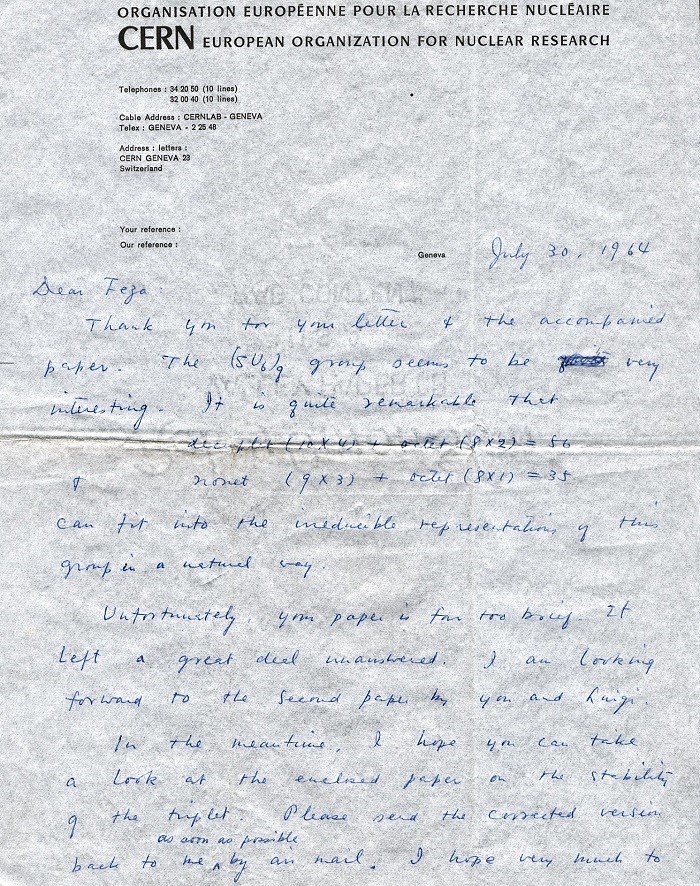 ORGANISATION EUROPÉENNE POUR LA RECHERCHE NUCLÉAIRE
CERN EUROPEAN ORGANIZATION FOR NUCLEAR RESEARCH
Telephones : 34 20 50 (10 lines)
32 00 40 (10 lines)
Cable Address : CERNLAB - GENEVA
Telex : GENEVA - 2 25 48
Address : letters :
CERN GENEVA 23
Switzerland
Your reference :
Our reference :
Geneva July 30, 1964
Dear Feza:
Thank you for your letter & the accompanied
paper. The (SU6)g group seems to be very
interesting. It is quite remarkable that
decuplet (10x4) + octet (8x2) = 56
& nonet (9x3) + octet (8x1) = 35
can fit into the irreducible representations of this
group in a natural way.
Unfortunately, your paper is far too brief. It
left a great deal unanswered. I am looking
forward to the second paper by you and Luigi.
In the meantime, I hope you can take
a look at the enclosed paper on the stability
of the triplet. Please send the corrected version
as soon as possible
back to me ^ by air mail. I hope very much to